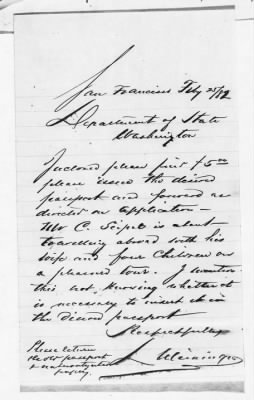 San Francisco Feby 25/92
Department of State
Washington
Inclosed please find $5.00
please issue the desired
passport and forward as
directed on application –
Mr C. is about
travelling abroad with his
wife and four Children on
a pleasure tour. I mention
this not knowing whether it
is necessary to insert it in
the desired passport
Respectfully
Please return
the old passport
& naturalization
papers.